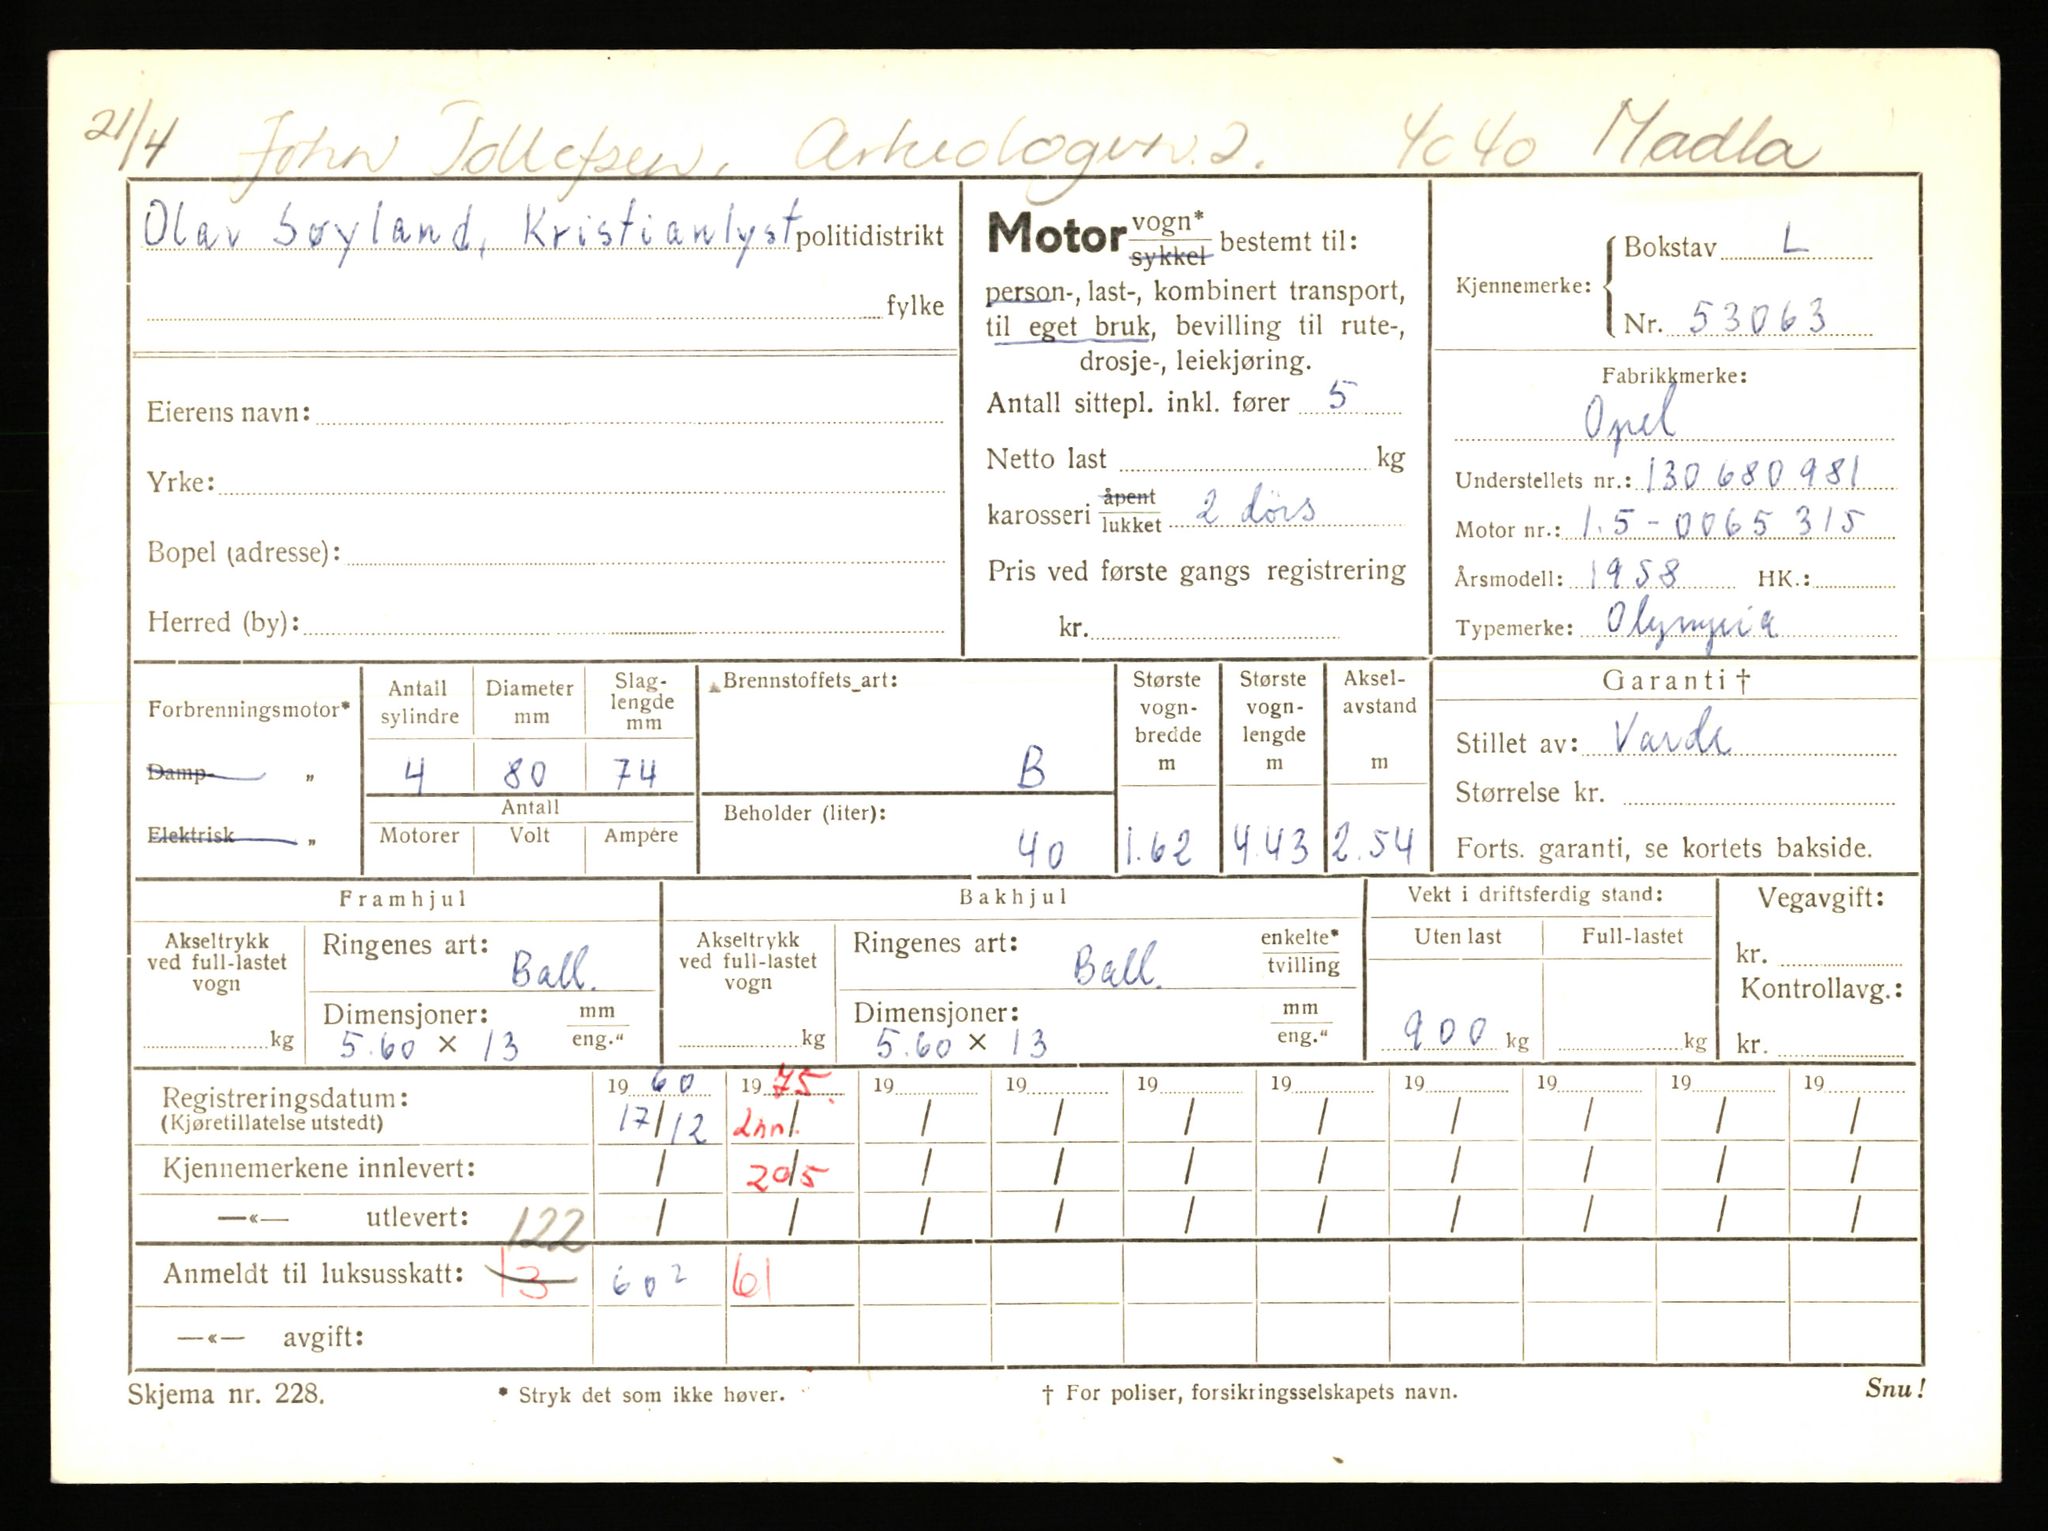 21/4 John Tollefsen, Arkeologvn. 2. 4040 Madla
Olav Søyland, Kristianlyst politidistrikt
fylke
Eierens navn:
Yrke:
Bopel (adresse):
Herred (by):
Motor vogn* sykkel bestemt til:
person-, last-, kombinert transport,
til eget bruk, bevilling til rute-,
drosje-, leiekjøring.
Antall sittepl. inkl. fører 5
Netto last kg
karosseri åpent lukket 2 dørs
Pris ved første gangs registrering
kr.
Kjennemerke: Bokstav L
Nr. 53063
Fabrikkmerke:
Opel
Understellets nr.: 130680981
Motor nr.: 1.5-0065315
Årsmodell: 1958 HK.:
Typemerke: Olympia
Forbrenningsmotor*
Damp- „
Elektrisk „
Antall sylindre
4
Diameter mm
80
Slag-
lengde
mm
74
Antall
Motorer Volt Ampère
Brennstoffets art:
B
Beholder (liter):
40
Største
vogn-
bredde
m
1.62
Største
vogn-
lengde
m
4.43
Aksel-
avstand
m
2.54
Garanti †
Stillet av: Varde
Størrelse kr.
Forts. garanti, se kortets bakside.
Framhjul
Akseltrykk
ved full-lastet
vogn
kg
Ringenes art:
Ball.
Dimensjoner: mm eng."
5.60 × 13
Bakhjul
Akseltrykk
ved full-lastet
vogn
kg
Ringenes art: enkelte* tvilling
Ball.
Dimensjoner: mm eng."
5.60 × 13
Vekt i driftsferdig stand:
Uten last Full-lastet
900 kg kg
Vegavgift:
kr.
Kontrollavg.:
kr.
Registreringsdatum: 19 60 19 75. 19 19 19 19 19 19 19 19
(Kjøretillatelse utstedt) 17/12 2nn/. / / / / / / / /
Kjennemerkene innlevert: / 20/5 / / / / / / / /
—«— utlevert: / / / / / / / / / /
122
Anmeldt til luksusskatt: 13 60² 61
—«— avgift:
Skjema nr. 228. * Stryk det som ikke høver. † For poliser, forsikringsselskapets navn. Snu!